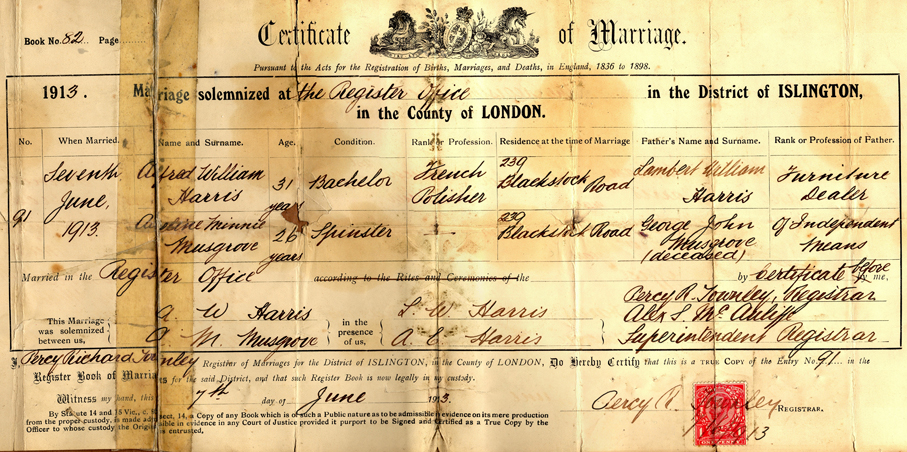 Book No. 82 Page
Certificate of Marriage.
Pursuant to the Acts for the Registration of Births, Marriages, and Deaths, in England, 1836 to 1898.
1913. Marriage solemnized at the Register Office in the District of ISLINGTON,
in the County of LONDON.
No. When Married. Name and Surname. Age. Condition. Rank or Profession. Residence at the time of Marriage Father's Name and Surname. Rank or Profession of Father.
91 Seventh June, 1913.
Alfred William Harris 31 years Bachelor French Polisher 239 Blackstock Road Lambert William Harris Furniture Dealer
Caroline Minnie Musgrove 26 years Spinster — 239 Blackstock Road George John Musgrove (deceased) Of Independent Means
Married in the Register Office according to the Rites and Ceremonies of the by Certificate before by me,
This Marriage was solemnized between us, A. W Harris M. Musgrove in the presence of us, L. W. Harris A. E. Harris
Percy R. Townley, Registrar
Superintendent Registrar
I, Percy Richard Townley Registrar of Marriages for the District of ISLINGTON, in the County of LONDON, Do Hereby Certify that this is a TRUE COPY of the Entry No. 91 in the
Register Book of Marriages for the said District, and that such Register Book is now legally in my custody.
Witness my hand, this 7th day of June 1913.
By Statute 14 and 15 Vic., c. sect. 14, a Copy of any Book which is of such a Public nature as to be admissible in evidence on its mere production
from the proper custody, is made admissible in evidence in any Court of Justice provided it purport to be Signed and Certified as a True Copy by the
Officer to whose custody the Original is entrusted.
Percy R. Townley REGISTRAR.
ONE PENNY